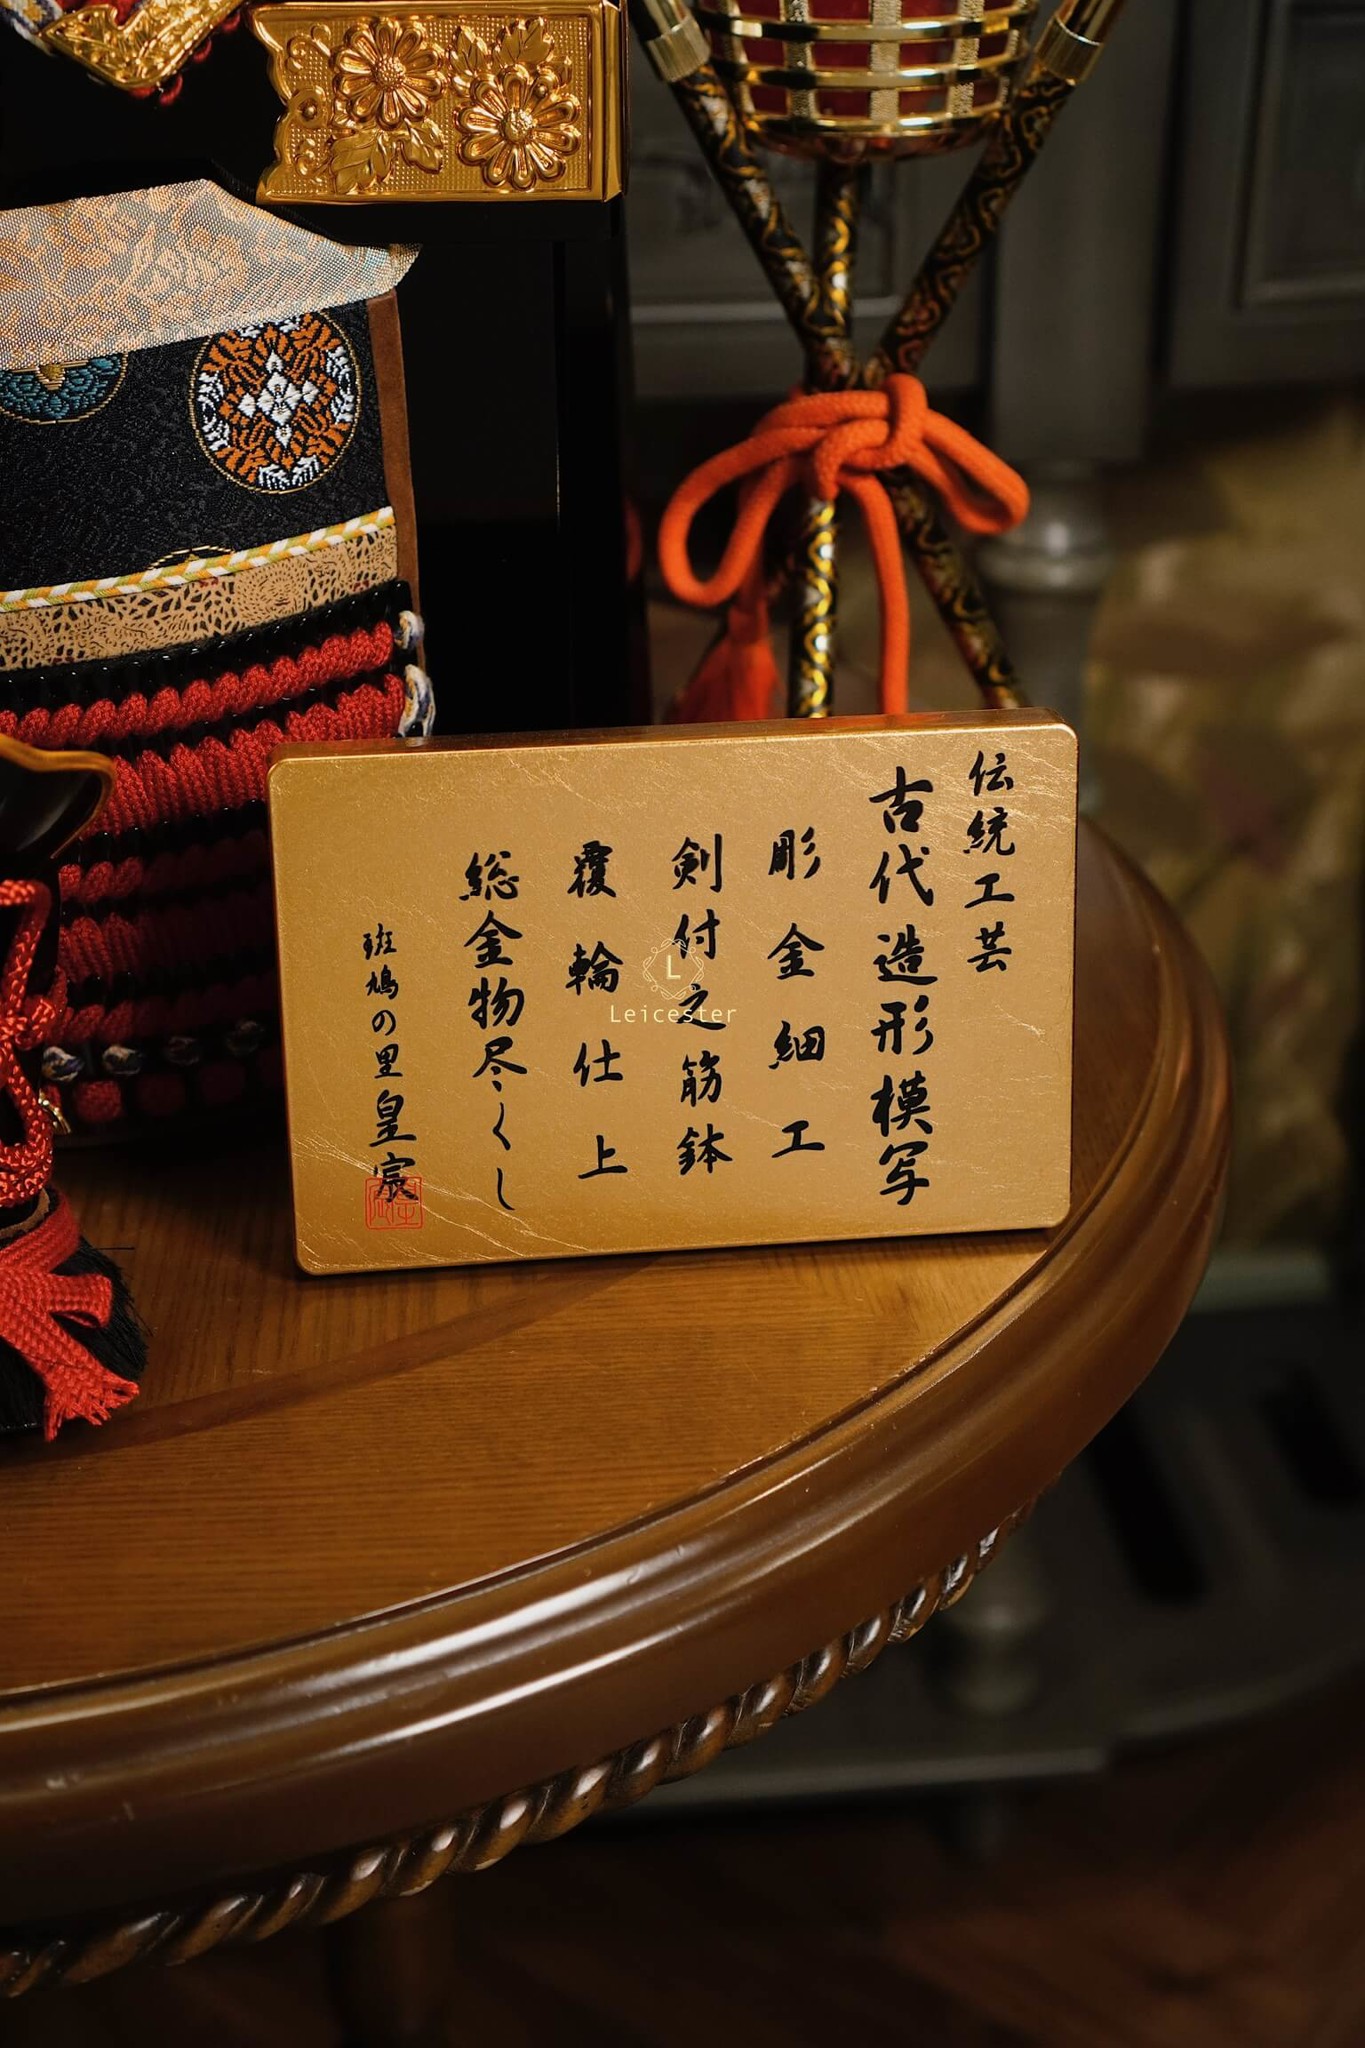 伝統工芸
古代造形模写
彫金細工
剣付之筋鉢
覆輪仕上
総金物尽くし
斑鳩の里皇宸
L
Leicester